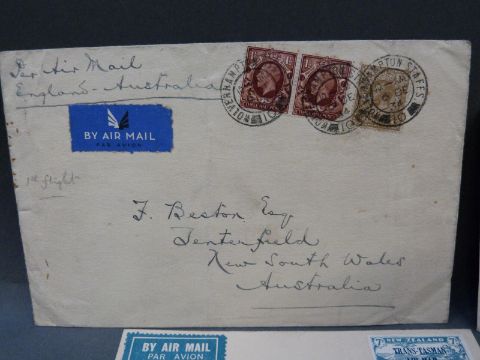 Per Air Mail
England-Australia
BY AIR MAIL
PAR AVION
1st flight
WOLVERHAMPTON
WOLVERHAMPTON STAFFS
F. Beston Esq
Tenterfield
New South Wales
Australia
BY AIR MAIL
PAR AVION
NEW ZEALAND
TRANS-TASMAN
AIR MAIL